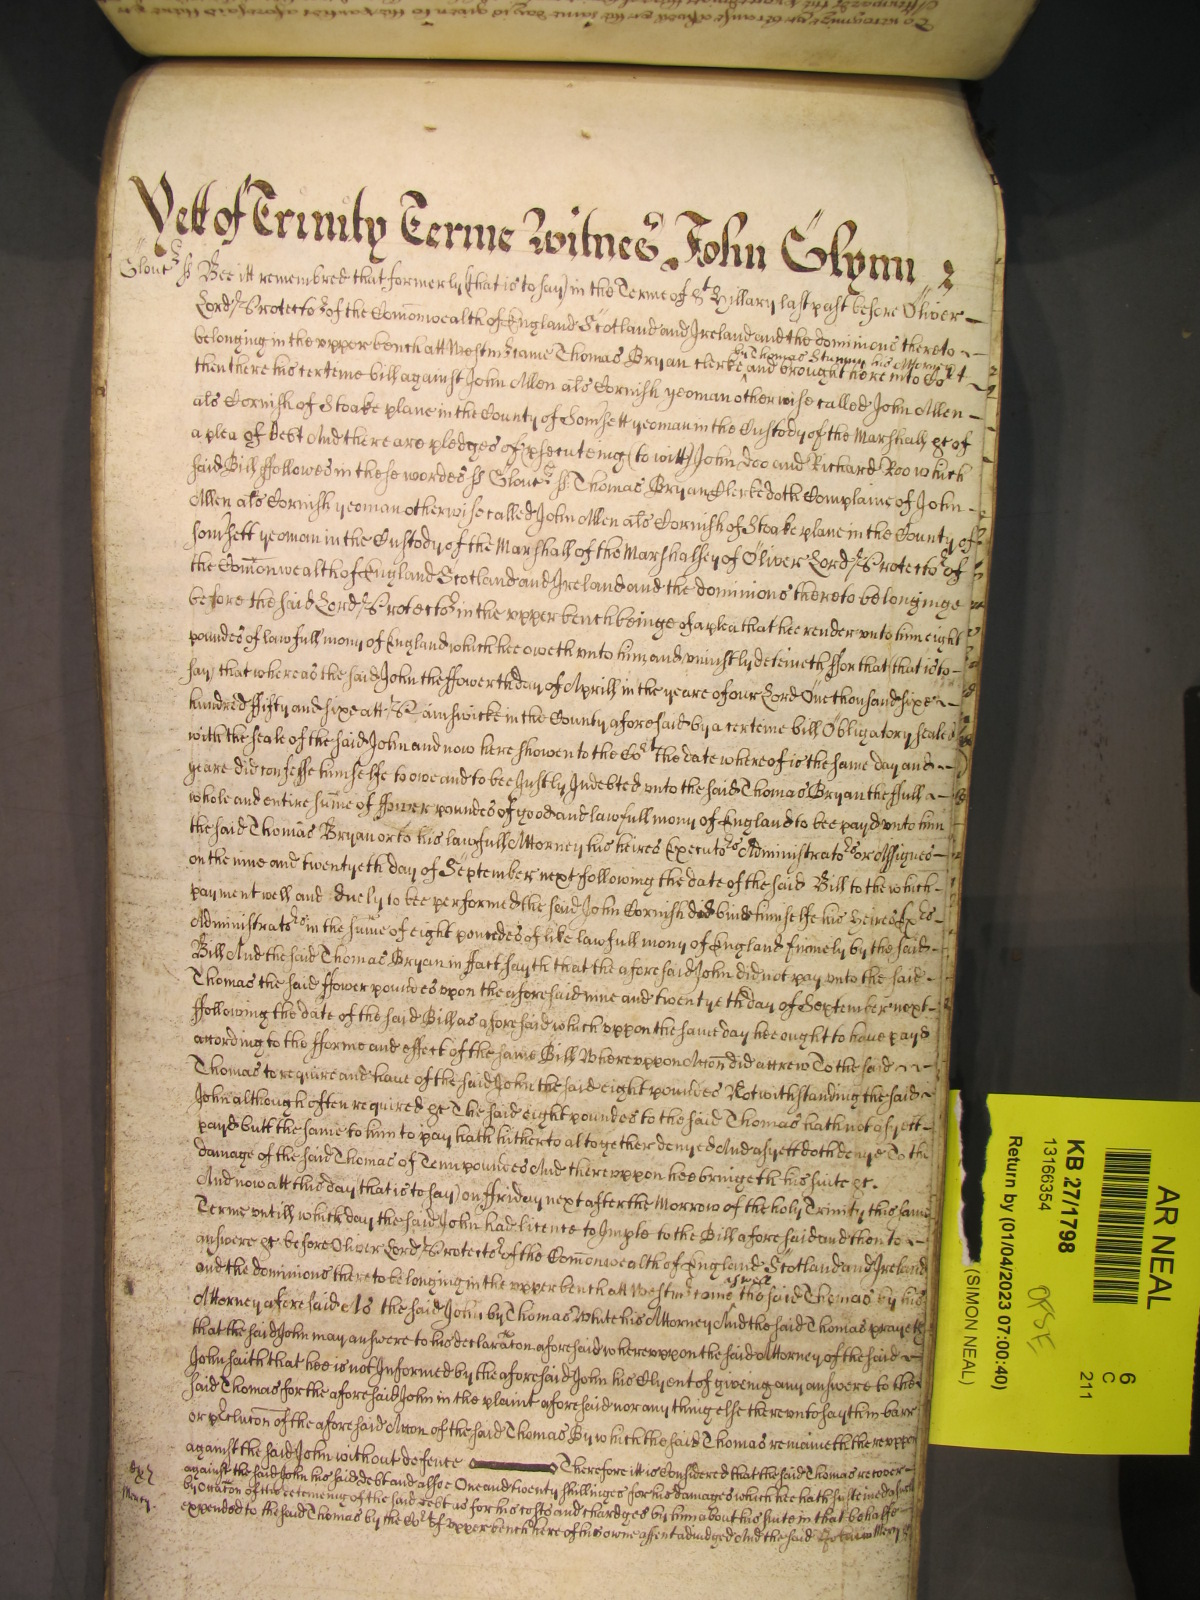 Yett of Trinity Terme Witnes John Glynn
Glouc ss Bee itt remembred that formerly (that is to say) in the Terme of St Hillary last past before Oliver
Lord Protector of the Comonwealth of England Scotland and Ireland and the dominions thereto
belonging in the upper bench att Westmr came Thomas Bryan clerke by Thomas his Attorney and brought here into Cort
then there his certeine bill against John Allen als Cornish yeoman otherwise called John Allen
als Cornish of Stoake plane in the County of Somsett yeoman in the Custody of the Marshall &c of
a plea of debt And there are pledges of prsecuteing (to witt) John Doo and Richard Roo which
said Bill ffollowes in these wordes ss Gloucr ss Thomas Bryan Clerke doth Complaine of John
Allen als Cornish yeoman otherwise called John Allen als Cornish of Stoake plane in the County of
Somsett yeoman in the Custody of the Marshall of the Marshalsey of Oliver Lord Protector of
the Comonwealth of England Scotland and Ireland and the dominions thereto belonginge
before the said Lord Protector in the upper bench beinge of a plea that hee render unto him eight
poundes of lawfull mony of England which hee oweth unto him and uniustly deteineth ffor that that is to
say that whereas the said John the ffowerth day of Aprill in the yeare of our Lord One thousand sixe
hundred ffifty and sixe att Painswicke in the County aforesaid by a certeine bill Obligatory seales
with the seale of the said John and now here showen to the Cort the date whereof is the same day and
yeare did confesse himselfe to owe and to bee Justly Indebted unto the said Thomas Bryan the ffull
whole and entire sume of ffower poundes of good and lawfull mony of England to bee payd unto him
the said Thomas Bryan or to his lawfull Attorney his heires Executors Administrators or Assignes
on the nine and twentyeth day of September next following the date of the said Bill to the which
payment well and duely to bee performed the said John Cornish did bind himselfe his heires Exrs
Administrators in the sume of eight poundes of like lawfull mony of England firmely by the said
Bill And the said Thomas Bryan in ffact sayth that the aforesaid John did not pay unto the said
Thomas the said ffower poundes upon the aforesaid nine and twentyeth day of September next
ffollowing the date of the said Bill as aforesaid which uppon the same day hee ought to have payd
according to the fforme and effect of the same Bill Whereuppon Accon did accrew To the said
Thomas to require and have of the said John the said eight poundes Notwithstanding the said
John although often required &c The said eight poundes to the said Thomas hath not as yett
payd butt the same to him to pay hath hitherto altogether denyed And as yett doth denye To the
damage of the said Thomas of Tenn poundes And thereuppon hee bringeth his suite &c.
And now att this day that is to say) on ffriday next after the Morrow of the holy Trinity this same
Terme untill which day the said John had licence to Imple to the Bill aforesaid and then to
answere &c before Oliver Lord Protector of the Comonwealth of England Scotland and Ireland
and the dominions thereto belonging in the upper bench att Westmr came aswell the said Thomas by his
Attorney aforesaid As the said John by Thomas White his Attorney And the said Thomas prayeth
that the said John may answere to his declaracon aforesaid whereuppon the said Attorney of the said
John saith that hee is not Informed by the aforesaid John his Clyent of giveing any answere to the
said Thomas for the aforesaid John in the plaint aforesaid nor any thing else thereunto say th in barr
or pclucon of the aforesaid Accon of the said Thomas By which the said Thomas remaineth thereuppon
against the said John without defence Therefore itt is Considered that the said Thomas recover
against the said John his said debt and alsoe One and twenty shillinges for his damages which hee hath susteined aswell
by Occacon of the deteineing of the said debt as for his costs and chardges by him about his suite in that behalfe
expended to the said Thomas by the Cort of upper bench here of his owne assent adiudged And the said John in Mercy &c
Mercy.
AR NEAL
KB 27/1798
13166354
Return by (01/04/2023 07:00:40)
(SIMON NEAL)
6
C
211